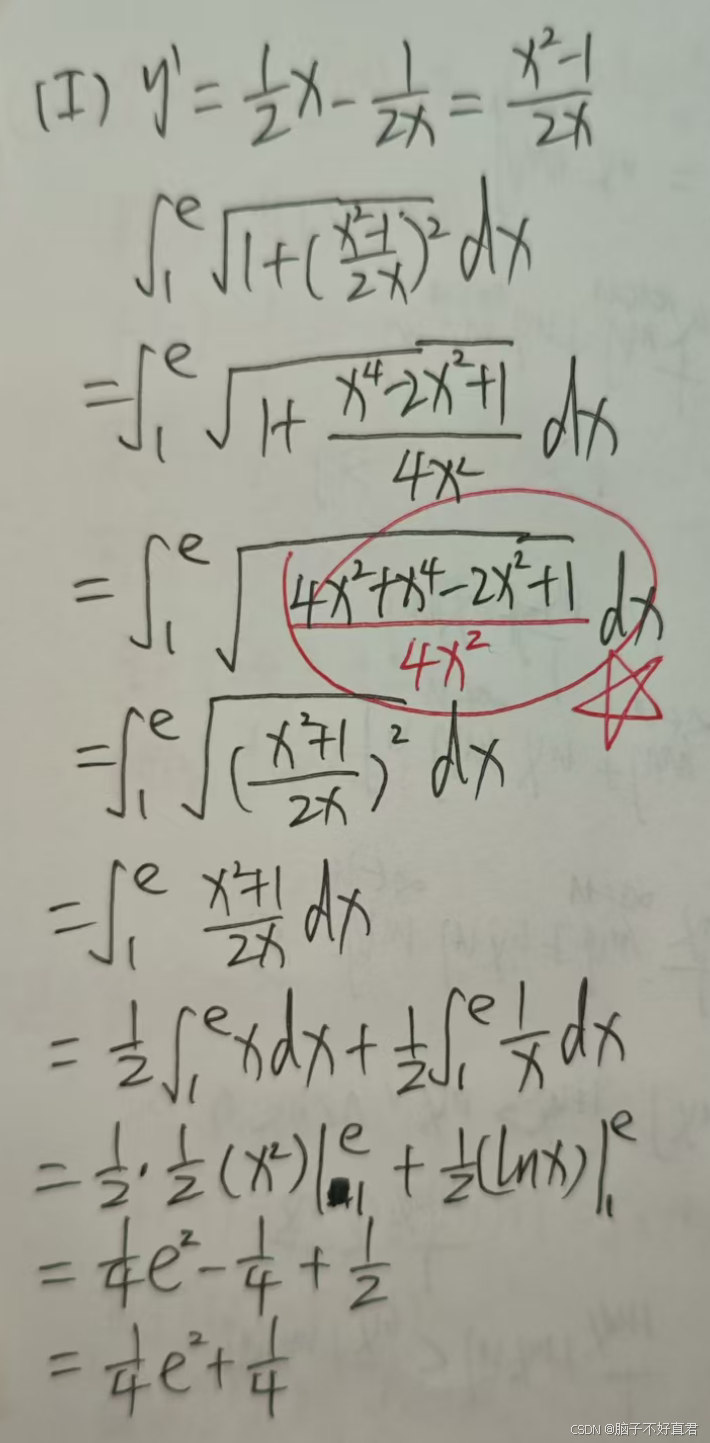 (I) y' = 1/2 x - 1/2x = x²-1/2x
∫₁ᵉ √(1+(x²-1/2x)²) dx
= ∫₁ᵉ √(1+ x⁴-2x²+1/4x²) dx
= ∫₁ᵉ √(4x²+x⁴-2x²+1/4x²) dx
= ∫₁ᵉ √((x²+1/2x)²) dx
= ∫₁ᵉ x²+1/2x dx
= 1/2 ∫₁ᵉ x dx + 1/2 ∫₁ᵉ 1/x dx
= 1/2 · 1/2 (x²)|₁ᵉ + 1/2 (lnx)|₁ᵉ
= 1/4 e² - 1/4 + 1/2
= 1/4 e² + 1/4
CSDN @脑子不好直君